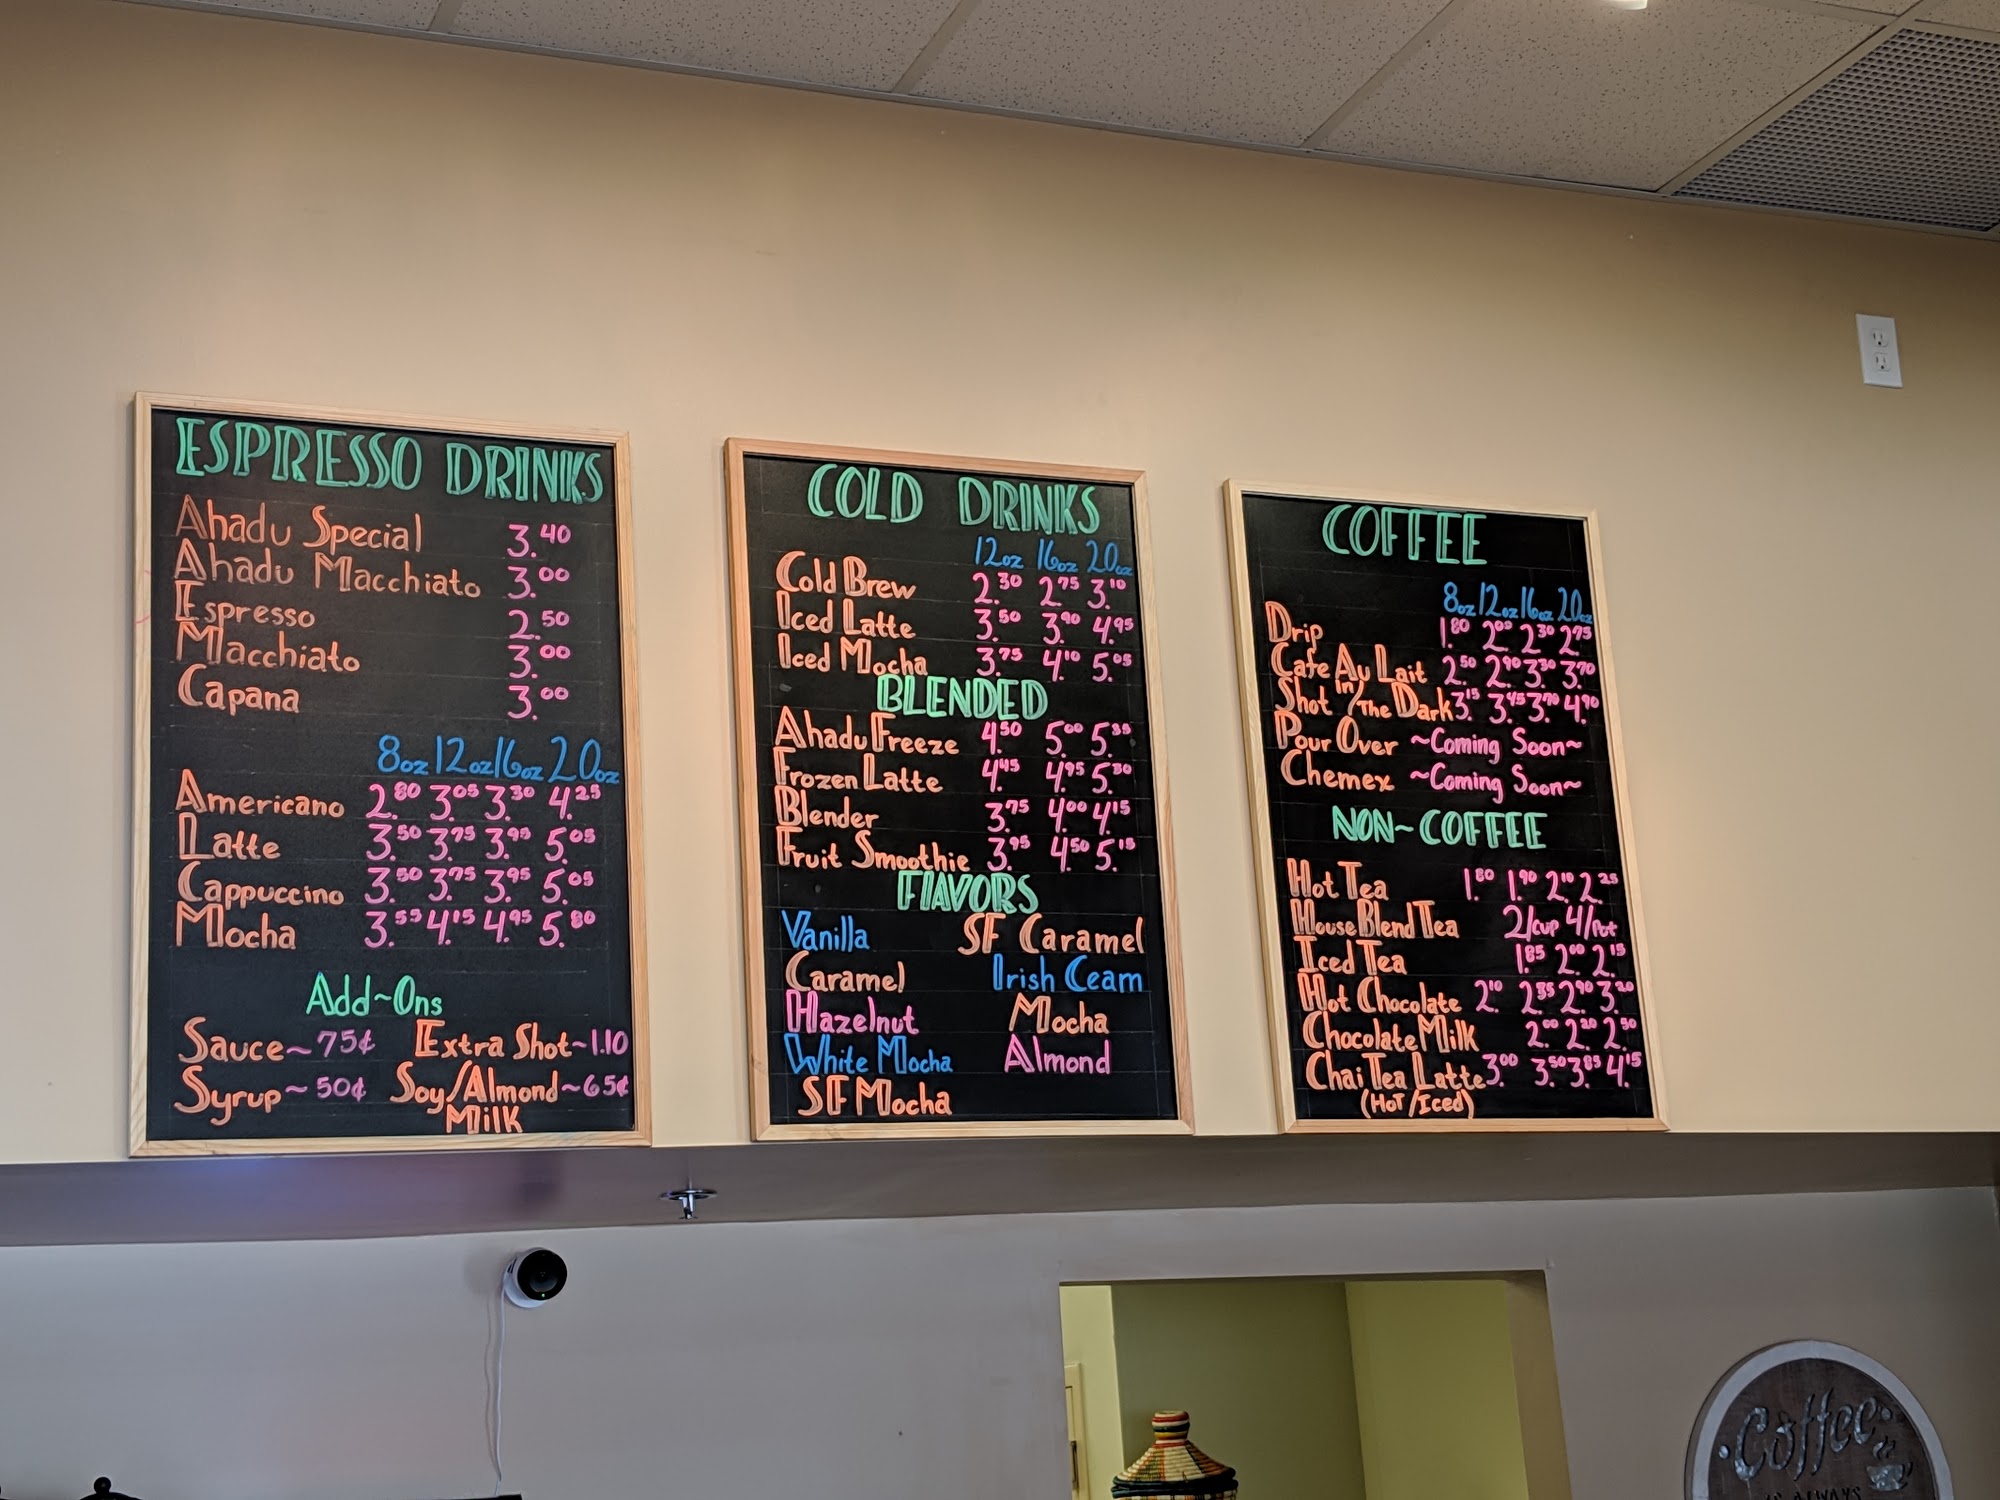 ESPRESSO DRINKS
Ahadu Special 3.40
Ahadu Macchiato 3.00
Espresso 2.50
Macchiato 3.00
Capana 3.00
8oz 12oz 16oz 20oz
Americano 2.80 3.05 3.30 4.25
Latte 3.50 3.75 3.95 5.05
Cappuccino 3.50 3.75 3.95 5.05
Mocha 3.55 4.15 4.95 5.80
Add~Ons
Sauce~75¢ Extra Shot~1.10
Syrup~50¢ Soy/Almond~65¢
Milk
COLD DRINKS
12oz 16oz 20oz
Cold Brew 2.30 2.75 3.10
Iced Latte 3.50 3.90 4.95
Iced Mocha 3.75 4.10 5.05
BLENDED
Ahadu Freeze 4.50 5.00 5.35
Frozen Latte 4.45 4.95 5.30
Blender 3.75 4.00 4.15
Fruit Smoothie 3.95 4.50 5.15
FlAVORS
Vanilla SF Caramel
Caramel Irish Ceam
Hazelnut Mocha
White Mocha Almond
SF Mocha
COFFEE
8oz 12oz 16oz 20oz
Drip 1.80 2.00 2.30 2.75
Cafe Au Lait 2.50 2.90 3.30 3.70
Shot In/The Dark 3.15 3.45 3.70 4.90
Pour Over ~Coming Soon~
Chemex ~Coming Soon~
NON~COFFEE
Hot Tea 1.80 1.90 2.10 2.25
House Blend Tea 2/cup 4/Pot
Iced Tea 1.85 2.00 2.15
Hot Chocolate 2.10 2.55 2.90 3.20
Chocolate Milk 2.00 2.20 2.50
Chai Tea Latte 3.00 3.50 3.85 4.15
(Hot/Iced)
Coffee
IS ALWAYS